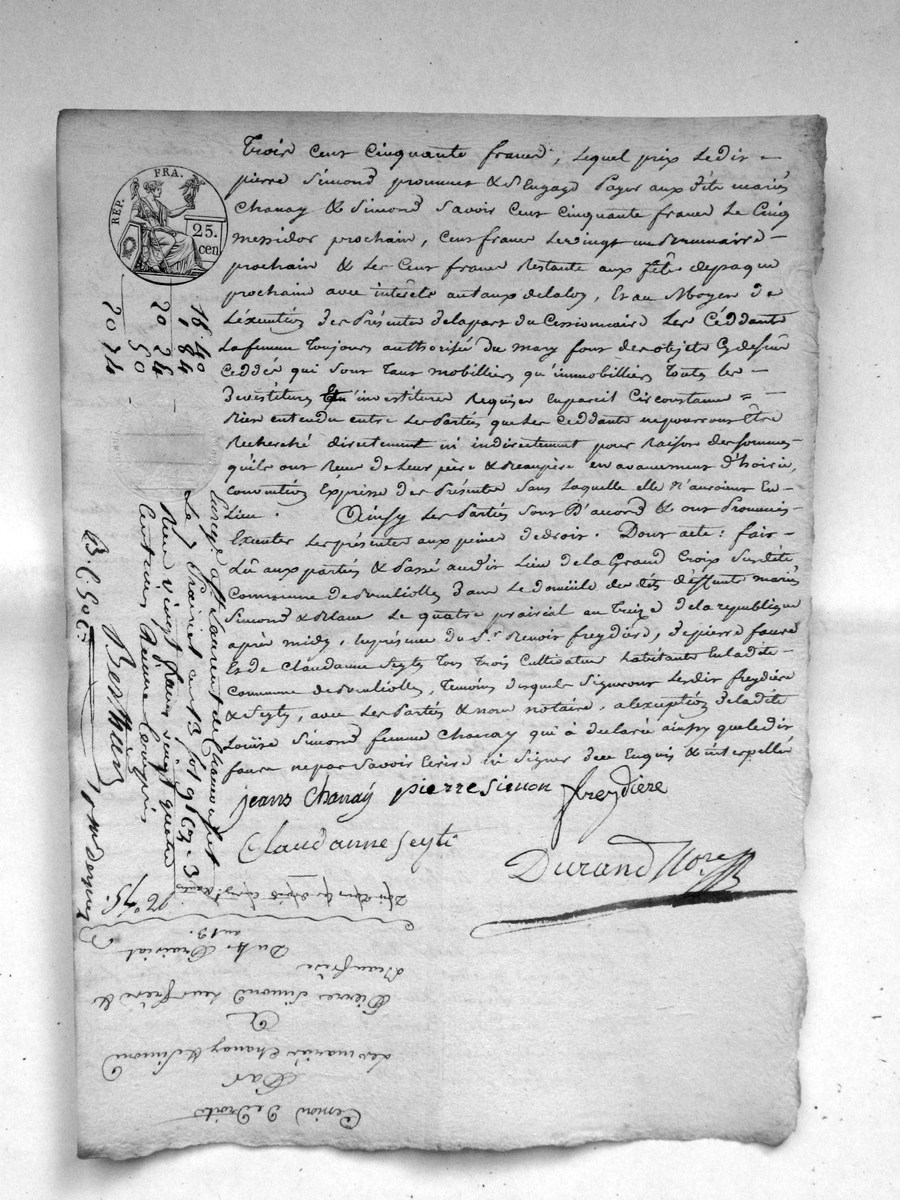 Trois cent cinquante francs, lequel prix ledit
pierre Simond prommet & s'Engage payer aux dits mariés
Chanay & Simond Savoir Cent Cinquante francs le Cinq
messidor prochain, Cent francs le vingt un Brumaire
prochain & les Cent francs Restants aux fêtes de paque
prochain avec intérêts au taux de la loi, Et au Moyen de
L'exécution des Présentes de la part du Cessionnaire Les Céddants
La femme Toujours authorisée du mary font des objets Cy dessus
Ceddés qui sont tant mobilliers qu'immobilliers Touts les
devestitures & investitures Requises En pareil Circonstance =
Bien entendu entre les Parties que les Ceddants ne pourront Être
Recherché directement ni indirectement pour Raison des sommes
qu'ils ont Reçu de leur père & Beaupère en avancement d'hoirie,
Convention Expresse des Présentes sans laquelle elle n'auroient Eu
Lieu. Ainsy les Parties sont D'accord & ont Prommis
Exécuter les présentes aux peines de droit. Dont acte: fait
Lû aux parties & Passé audit Lieu de la Grand Croix susdite
Commune de dans le domicile des dits mariés
Simond & Blanc Le quatre prairial an Treize de la republique
après midy, En présence de Sr. Benoit freydière, de pierre faure
Et de Claudanne Seyty Tous Trois Cultivateurs habitants En ladite
Commune de , Temoins desquels Signeront Ledit freydière
& Seyty, avec les Parties & nous notaire, a l'exeption de ladite
Louise Simond femme Chanay qui à déclaré ainsy que ledit
faure ne pas Savoir Ecrire ni Signer de ce Enquis & interpellés
jeans Chanay pierre simon freydiere
Claudanne seyti
Durand Nore
RÉP. FRA.
25.
cen
16 40
1 84
20 24
50
20 74
Enregistré a St Chamond le
Le 7 Prairial an 13 fol 91 Cz. 3
Reçu vingt francs vingt quatre
Centimes Decime Compris
Berthier
Cession de Droits
Par
Les mariés Chanay & Simond
A
Pierre Simond leur frère &
Beaufrère
Du 4. Prairial
an 13.